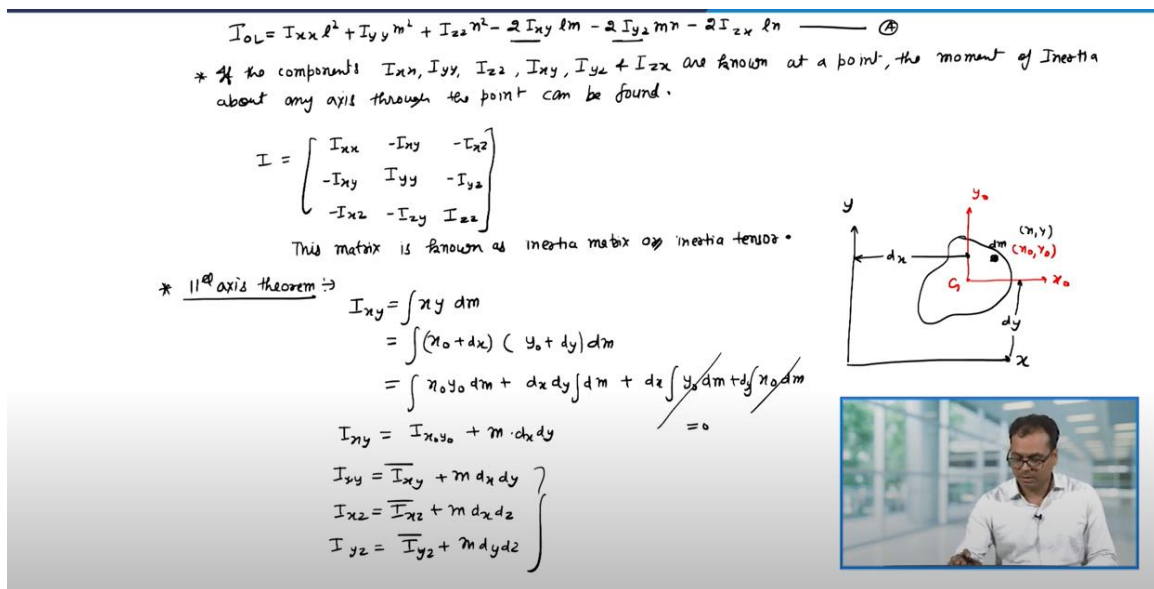 I_OL = Ixx l² + Iyy m² + Izz n² - 2 Ixy lm - 2 Iyz mn - 2 Izx ln —— Ⓐ
* If the components Ixx, Iyy, Izz, Ixy, Iyz & Izx are known at a point, the moment of Inertia
about any axis through the point can be found.
I = [ Ixx -Ixy -Ixz
-Ixy Iyy -Iyz
-Ixz -Izy Izz ]
This matrix is known as inertia matrix or inertia tensor.
* 11el axis theorem :→
Ixy = ∫ xy dm
= ∫ (x₀ + dx) ( y₀ + dy) dm
= ∫ x₀y₀ dm + dx dy ∫ dm + dx ∫ y₀ dm + dy ∫ x₀ dm
= 0
Ixy = Ix₀y₀ + m · dx dy
Ixy = I̅xy + m dx dy
Ixz = I̅xz + m dx dz
Iyz = I̅yz + m dy dz
y
y₀
(x, y)
dm (x₀, y₀)
dx
G
x₀
dy
x